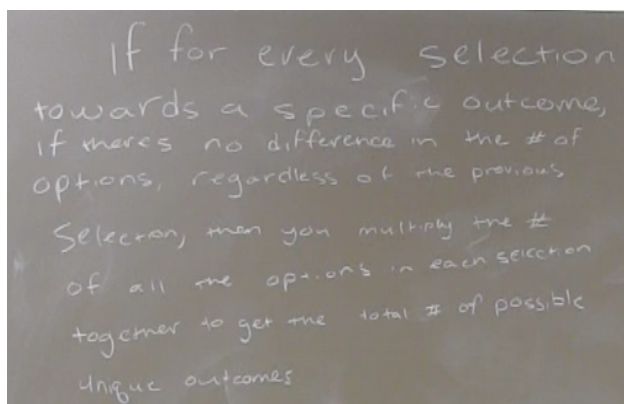 If for every selection
towards a specific outcome,
if theres no difference in the # of
options, regardless of the previous
Selection, then you multiply the #
of all the options in each selection
together to get the total # of possible
unique outcomes